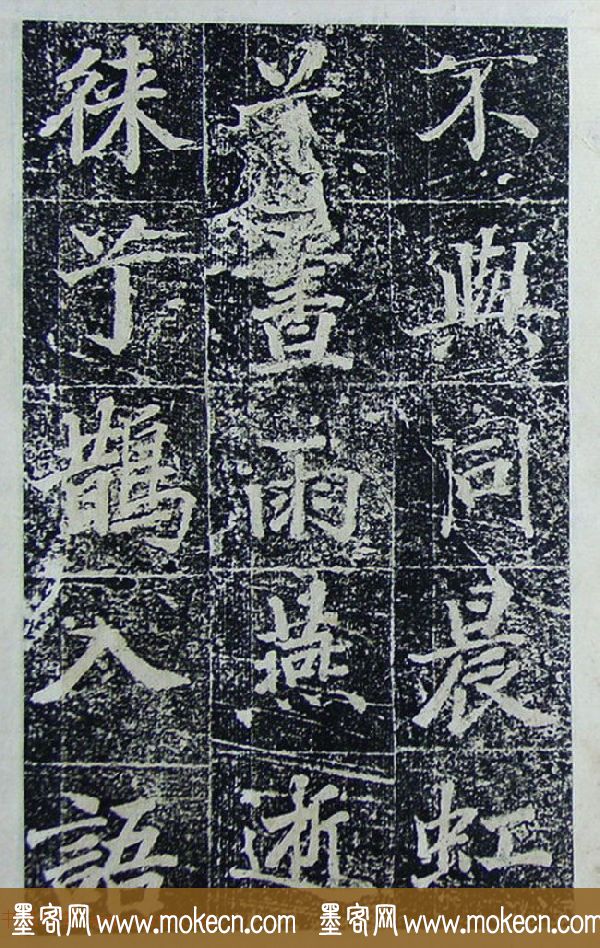 不與同晨虹
雨燕逝
徕兮鵲入語
墨客网 www.mokecn.com 墨客网 www.mokecn.com